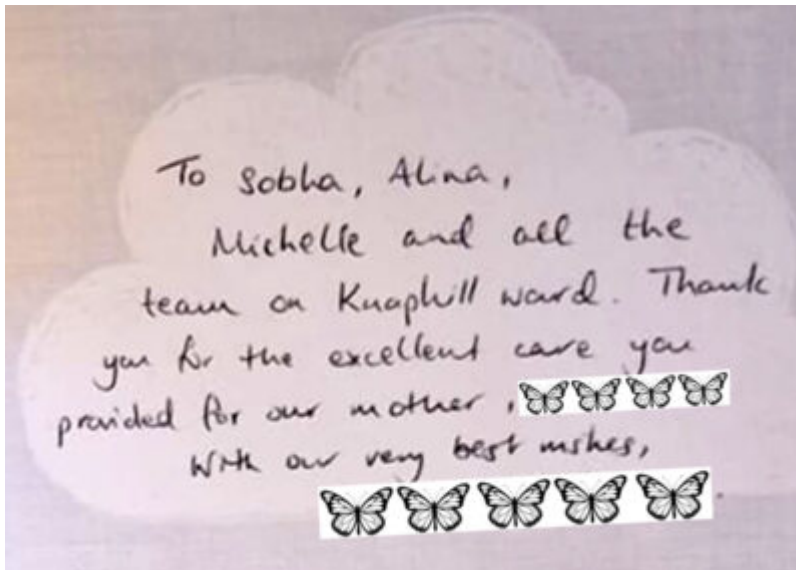 To Sobha, Alina,
Michelle and all the
team on Knaphill ward. Thank
you for the excellent care you
provided for our mother,
With our very best wishes,